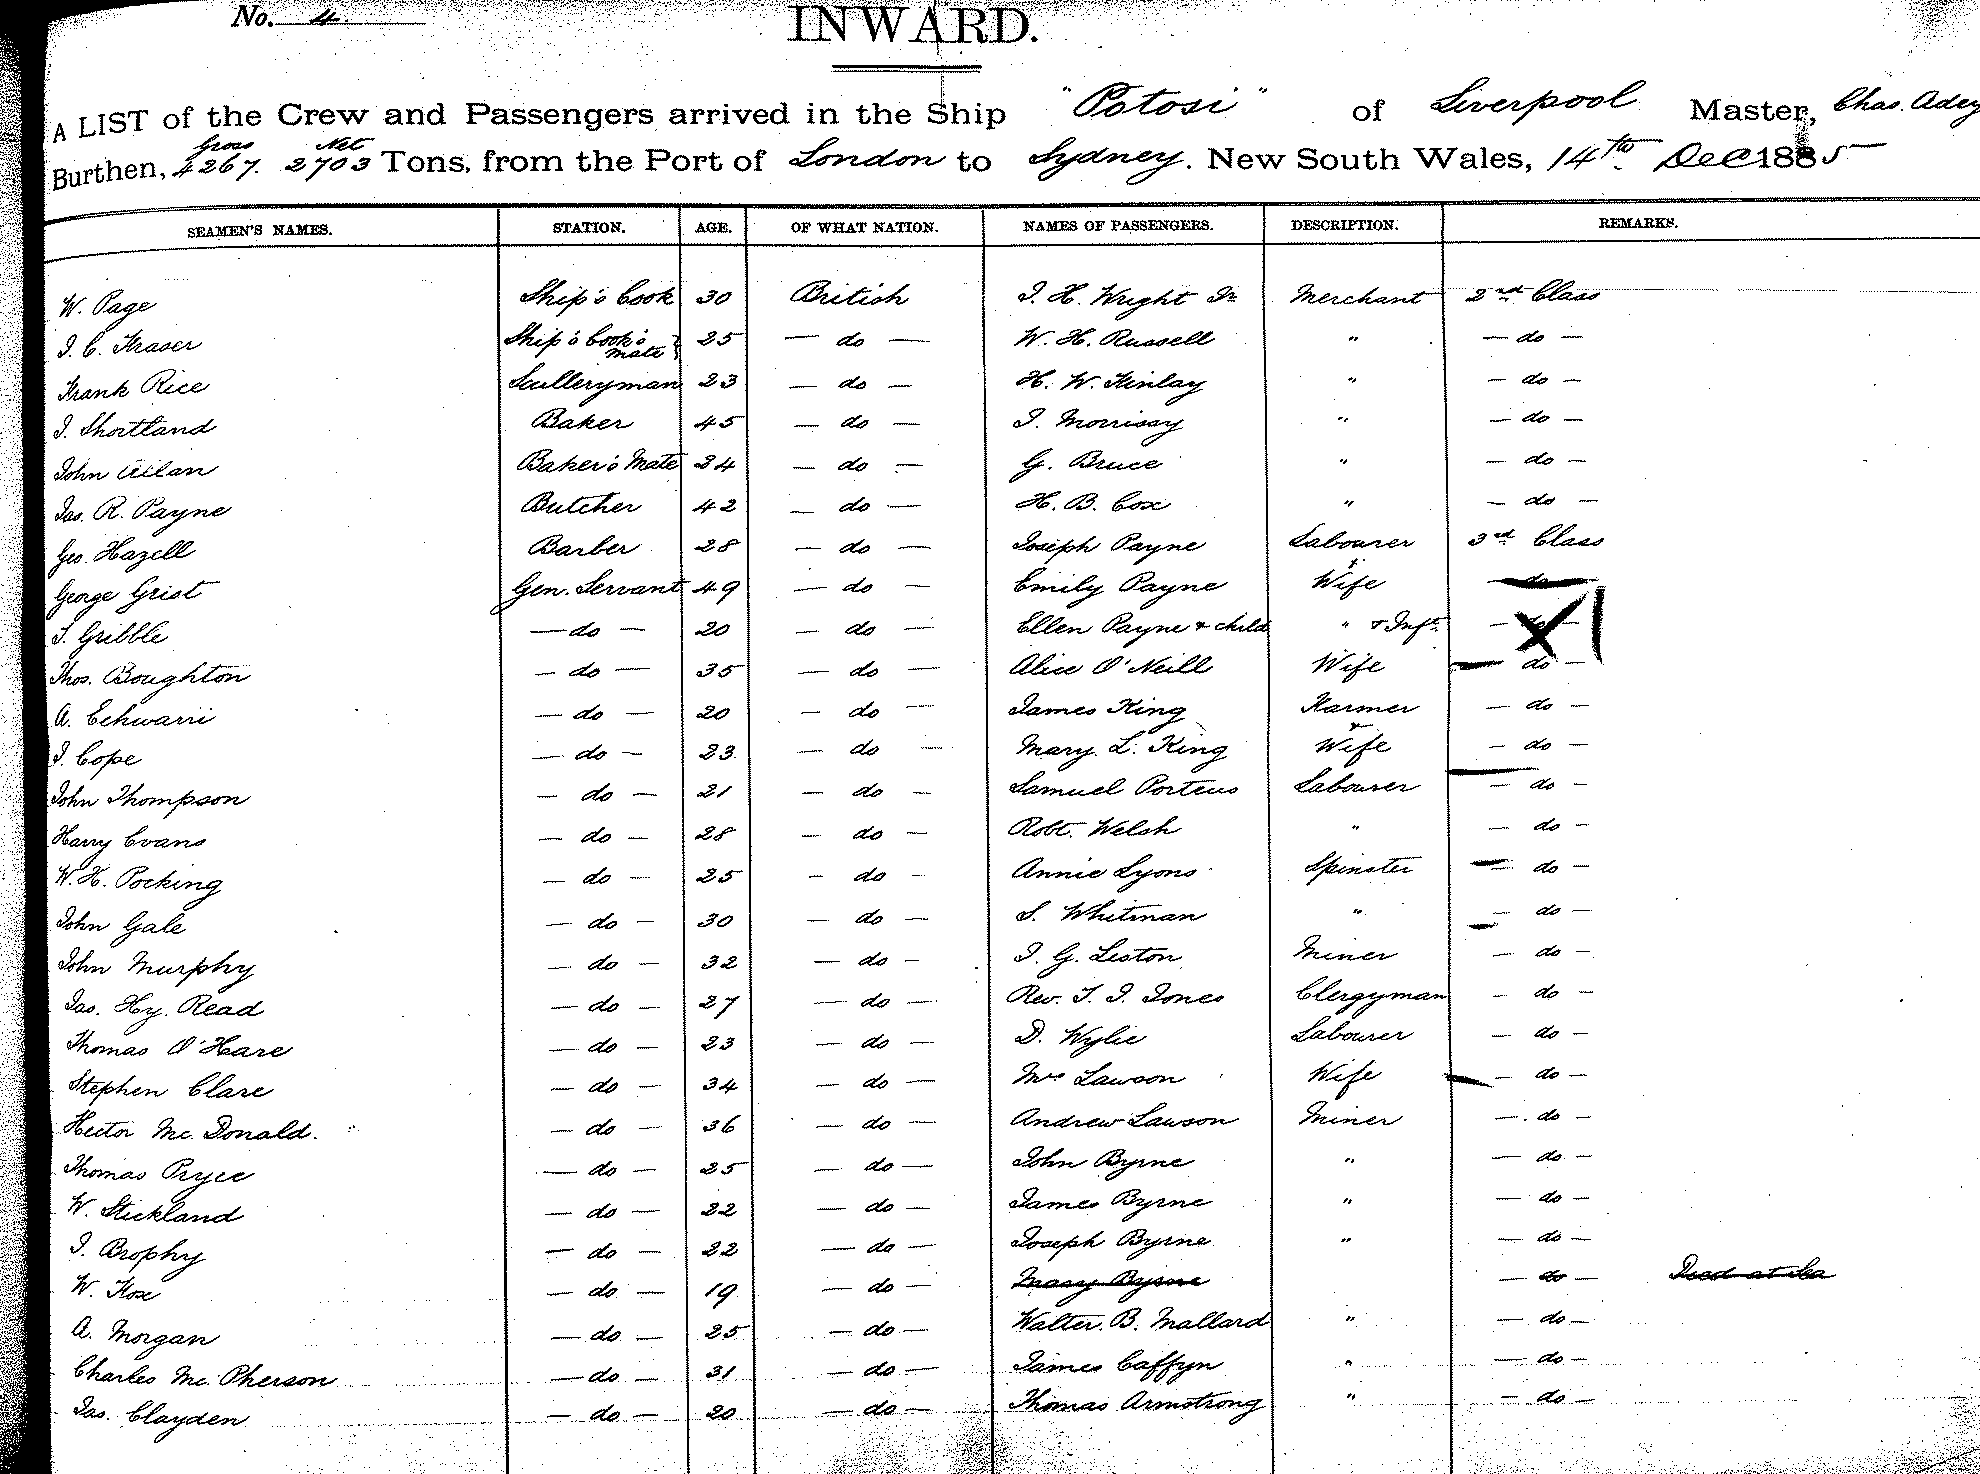 No. 4
INWARD.
A LIST of the Crew and Passengers arrived in the Ship "Potosi" of Liverpool Master, Chas. Adey
Burthen, Gross 4267. Net 2703 Tons, from the Port of London to Sydney. New South Wales, 14th Dec 1885
SEAMEN'S NAMES. STATION. AGE. OF WHAT NATION. NAMES OF PASSENGERS. DESCRIPTION. REMARKS.
W. Page Ship's Cook 30 British J. H. Wright Jr Merchant 2nd Class
J. C. Fraser Ship's Cook's Mate 25 — do — W. H. Russell " — do —
Frank Rice Sculleryman 23 — do — H. W. Finlay " — do —
J. Shortland Baker 45 — do — J. Morrissy " — do —
John Allan Baker's Mate 24 — do — G. Bruce " — do —
Jas. R. Payne Butcher 42 — do — H. B. Cox " — do —
Geo. Hazell Barber 28 — do — Joseph Payne Labourer 3rd Class
George Grist Gen. Servant 49 — do — Emily Payne + Wife — do —
T. Gribble — do — 20 — do — Ellen Payne & child " & Inft. — do —
Thos. Boughton — do — 35 — do — Alice O'Neill Wife — do —
A. Echwarri — do — 20 — do — James King Farmer — do —
J. Cope — do — 23 — do — Mary L. King + Wife — do —
John Thompson — do — 21 — do — Samuel Porteus Labourer — do —
Harry Evans — do — 28 — do — Robt. Welsh " — do —
W. H. Pocking — do — 25 — do — Annie Lyons Spinster — do —
John Gale — do — 30 — do — S. Whitman " — do —
John Murphy — do — 32 — do — J. G. Leston Miner — do —
Jas. Hy. Read — do — 27 — do — Rev. T. J. Jones Clergyman — do —
Thomas O'Hare — do — 23 — do — D. Wylie Labourer — do —
Stephen Clare — do — 34 — do — Mrs Lawson Wife — do —
Hector Mc. Donald. — do — 36 — do — Andrew Lawson Miner — do —
Thomas Pryce — do — 25 — do — John Byrne " — do —
W. Stickland — do — 22 — do — James Byrne " — do —
J. Brophy — do — 22 — do — Joseph Byrne " — do —
W. Fox — do — 19 — do — Mary Byrne — do — Died at Sea
A. Morgan — do — 25 — do — Walter. B. Mallard " — do —
Charles Mc. Pherson — do — 31 — do — James Caffyn " — do —
Jas. Clayden — do — 20 — do — Thomas Armstrong " — do —